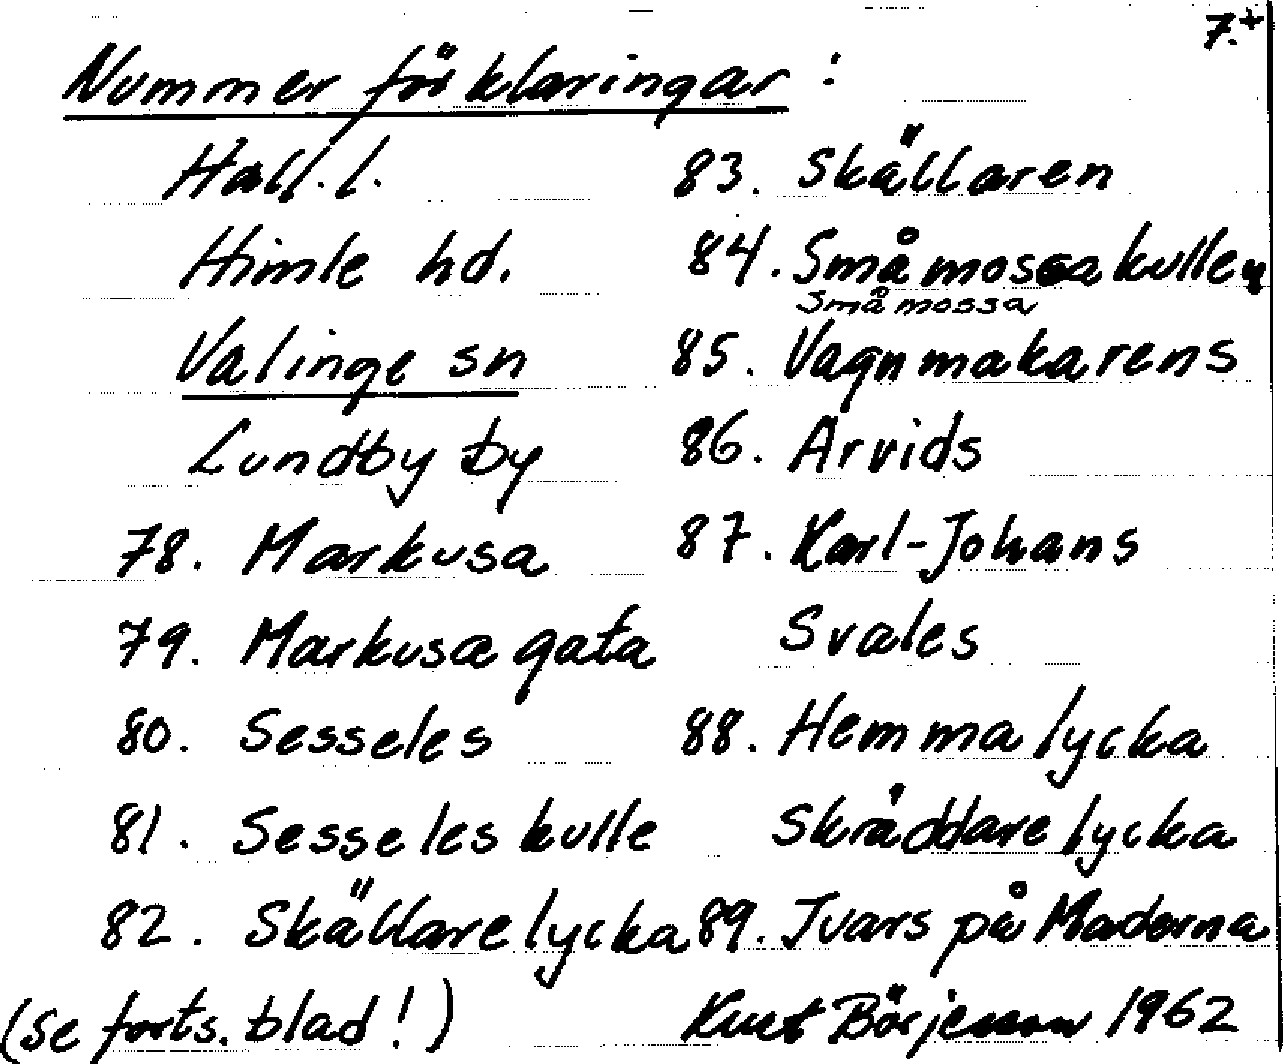 7.+
Nummer förklaringar:
Hall. l.
Himle hd.
Valinge sn
Lundby by
78. Markusa
79. Markusa gata
80. Sesseles
81. Sesseles kulle
82. Skällare lycka
(se forts. blad!)
83. Skällaren
84. Små mossa kullen
Små mossa
85. Vagnmakarens
86. Arvids
87. Karl-Johans
Svales
88. Hemma lycka
Skräddare lycka
89. Ivars på Maderna
Kurt Börjesson 1962